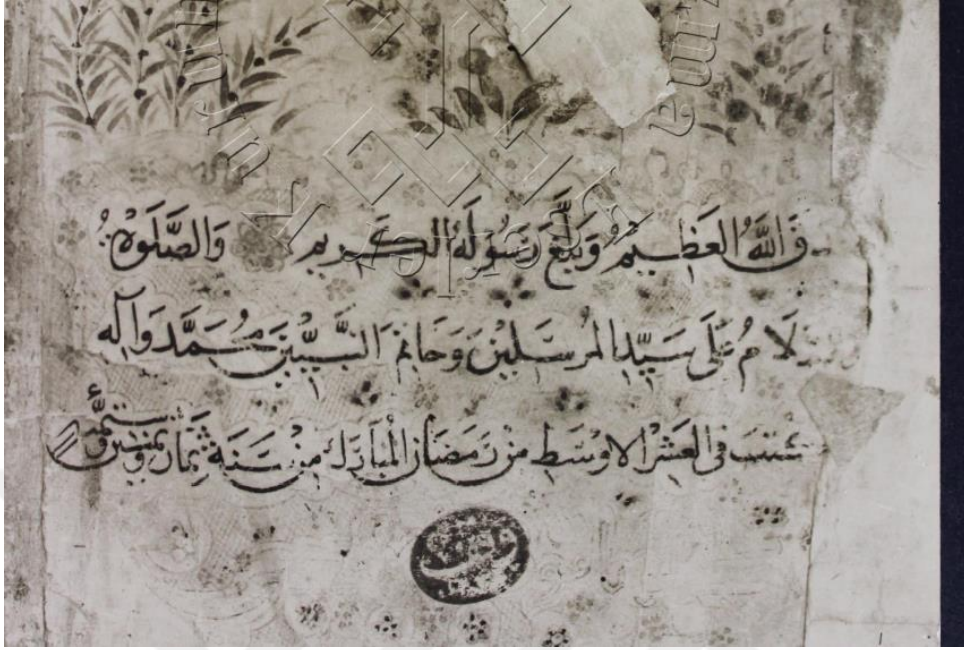 ق الله العظيم وبلغ رسوله الكريم والصلوة
لام على سيد المرسلين وخاتم النبيين محمد وآله
في العشر الاوسط من رمضان المبارك من سنة ثمان وستمئة
وقف